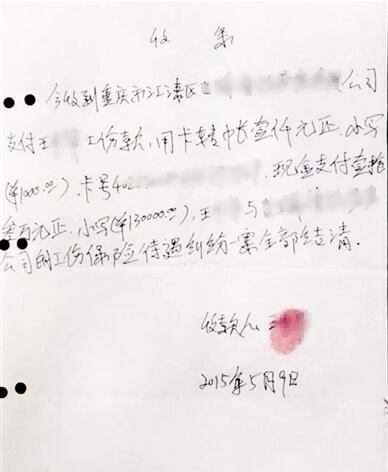 收 条
今收到重庆市江津区 公司
支付王 工伤款,用卡转帐壹仟元正.小写
(¥1000.00),卡号 现金支付壹拾
叁万元正,小写(¥130000.00),王 与
公司的工伤保险待遇纠纷一案全部结清.
收款人 王
2015年5月9日